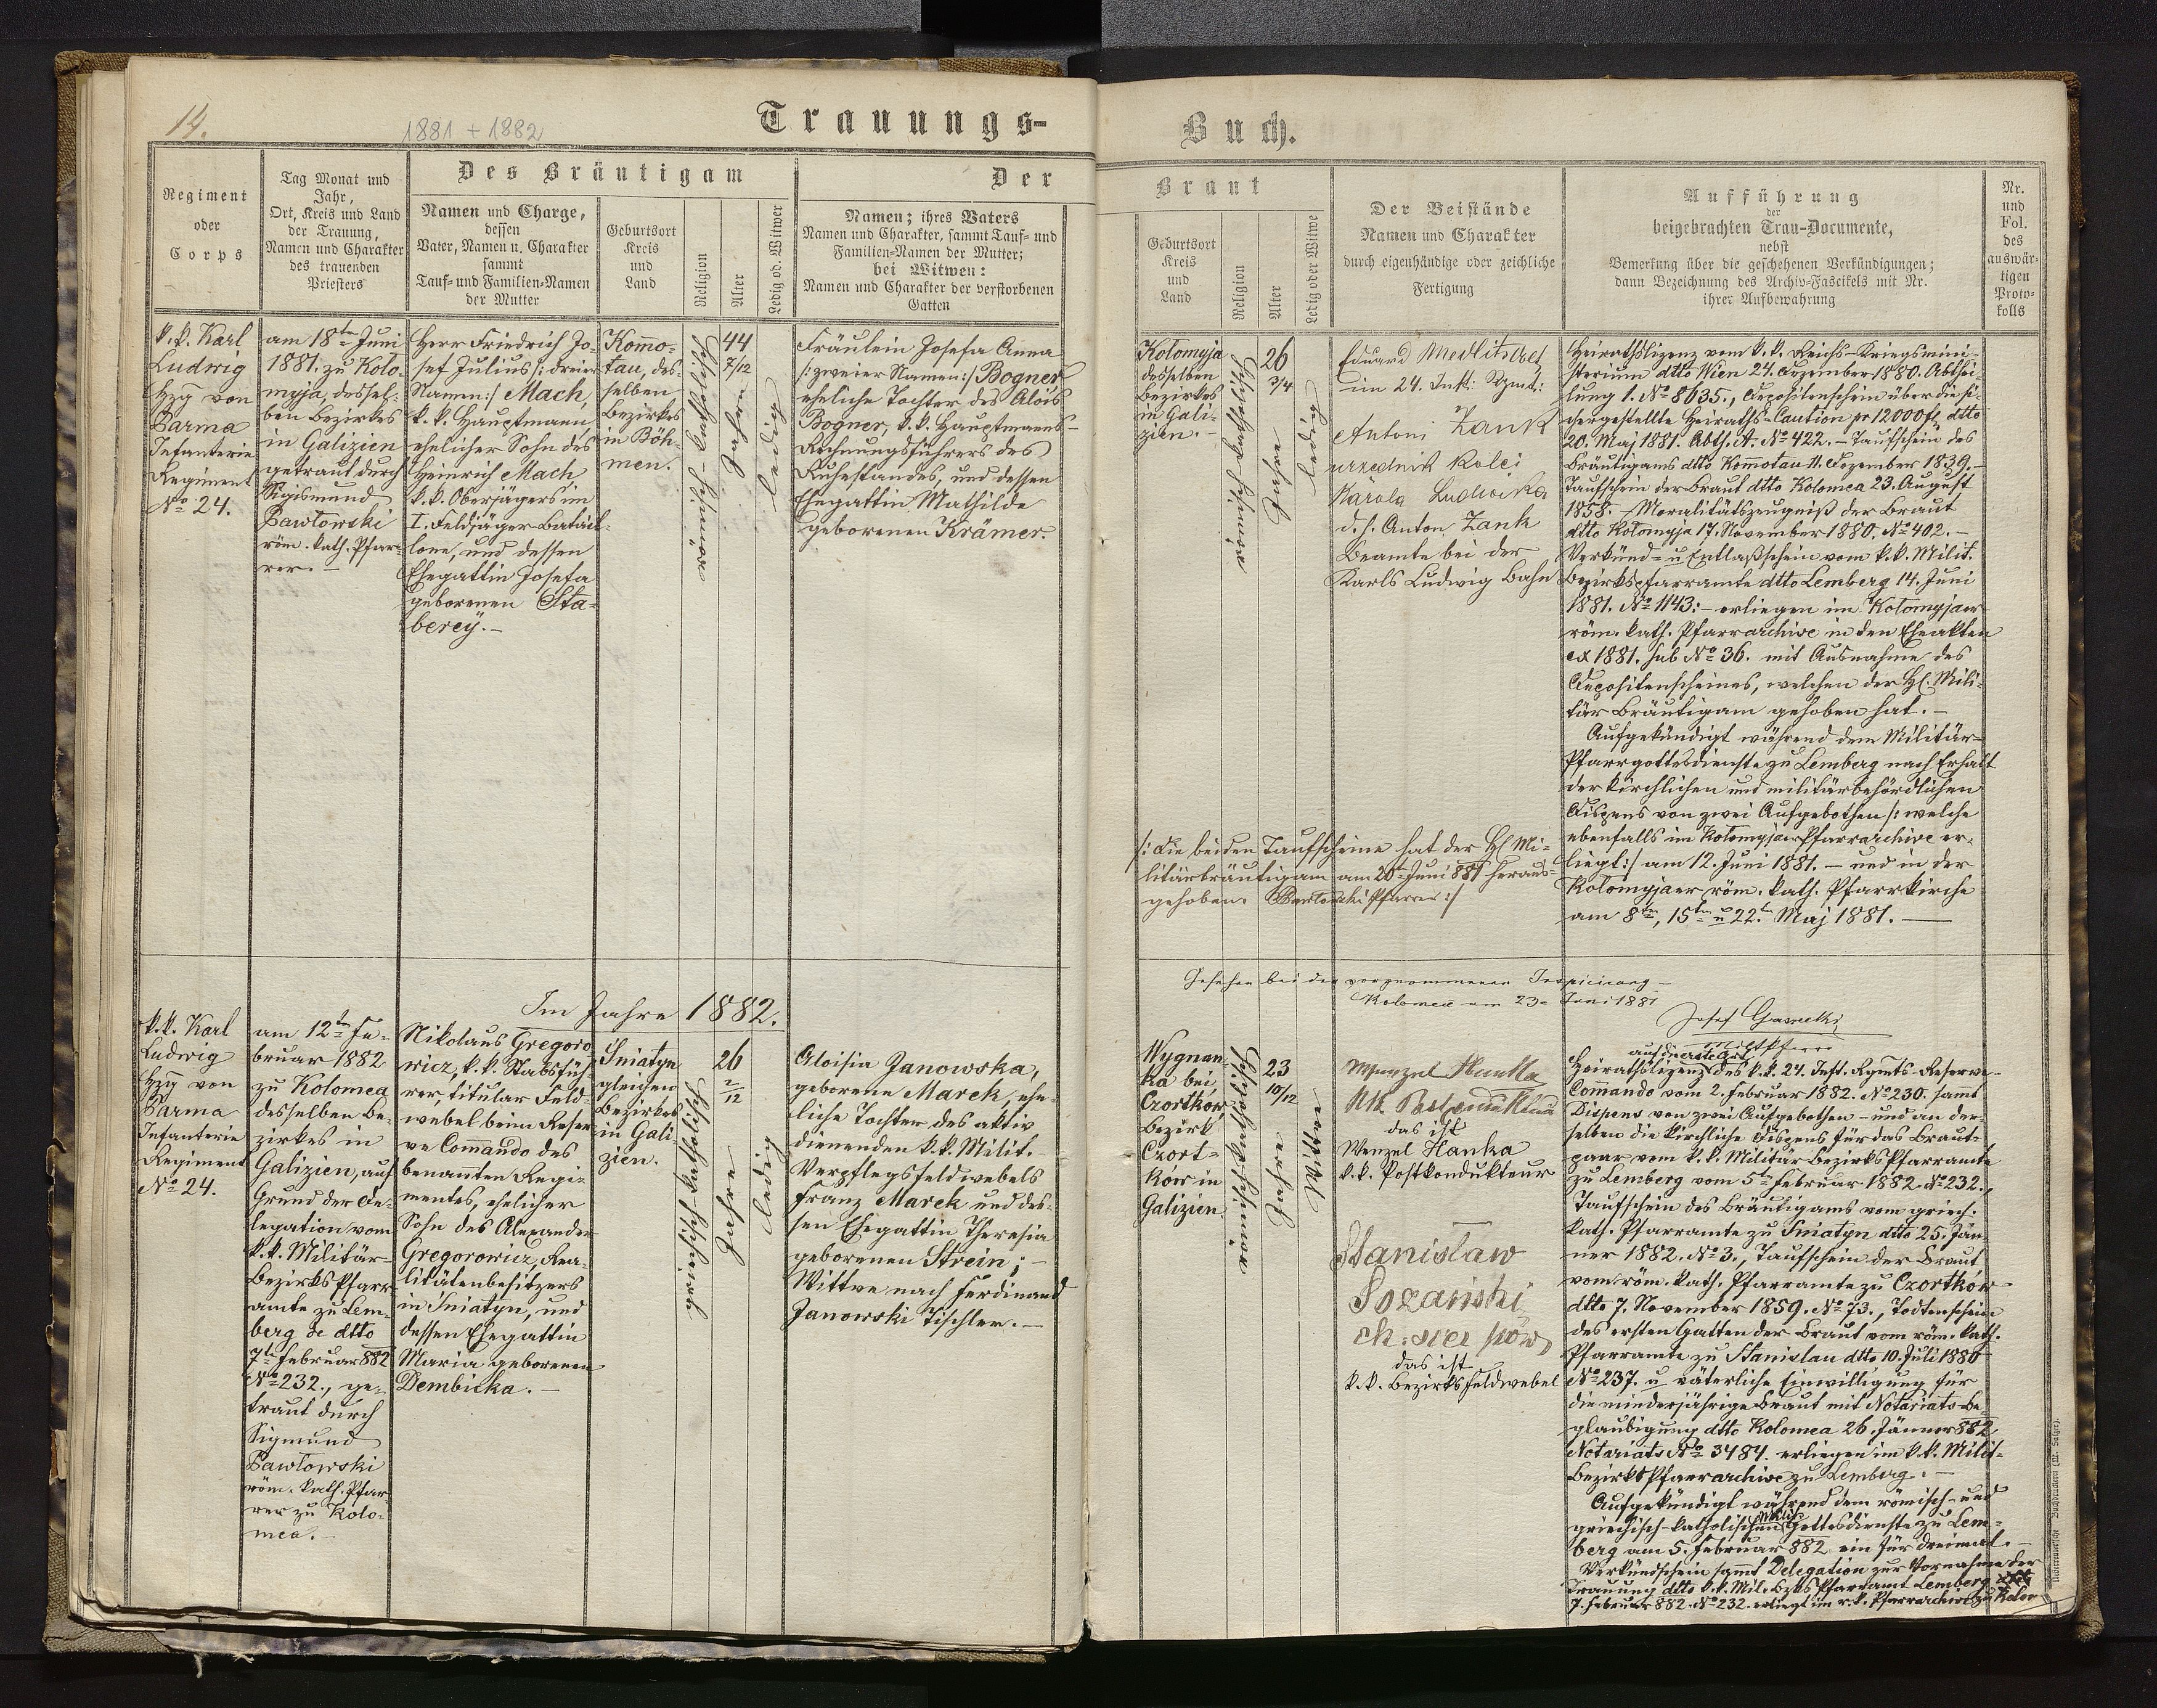 14.
1881 + 1882
Trauungs-
Buch.
Regiment
oder
Corps
Tag Monat und
Jahr,
Ort, Kreis und Land
der Trauung,
Namen und Charakter
des trauenden
Priesters
Des Bräutigam
Namen und Charge,
dessen
Vater, Namen u. Charakter
sammt
Tauf- und Familien-Namen
der Mutter
Geburtsort
Kreis
und
Land
Religion
Alter
Ledig od. Witwer
Der
Namen; ihres Vaters
Namen und Charakter, sammt Tauf- und
Familien-Namen der Mutter;
bei Witwen:
Namen und Charakter der verstorbenen
Gatten
Braut
Geburtsort
Kreis
und
Land
Religion
Alter
Ledig oder Witwe
Der Beistände
Namen und Charakter
durch eigenhändige oder zeichliche
Fertigung
Aufführung
der
beigebrachten Trau-Documente,
nebst
Bemerkung über die geschehenen Verkündigungen;
dann Bezeichnung des Archiv-Fascikels mit Nr.
ihrer Aufbewahrung
Nr.
und
Fol.
des
auswär-
tigen
Proto-
kolls
k. k. Karl
Ludwig
Hzg von
Parma
Infanterie
Regiment
No 24.
am 18ten Juni
1881. zu Kolo-
myja, dessel-
ben Bezirkes
in Galizien
getraut durch
Sigismund
Pawłowski
röm. kath. Pfar-
rer. –
Herr Friedrich Jo-
sef Julius /: dreier
Namen :/ Mach,
k. k. Hauptmann,
ehelicher Sohn des
Heinrich Mach
k. k. Oberjägers im
I. Feldjäger-Batail-
lone, und dessen
Ehegattin Josefa
geborenen Sta-
berey. –
Kommo-
tau, des-
selben
Bezirkes
in Böh-
men.
44
7/12
ledig
Fräulein Josefa Anna
/: zweier Namen :/ Bogner
eheliche Tochter des Alois
Bogner, k. k. Hauptmanns-
Rechnungsführers des
Ruhestandes, und dessen
Ehegattin Mathilde
geborenen Krämer.
Kolomyja
desselben
Bezirkes
in Gali-
zien. –
26
3/4
Jahre
ledig
Eduard
im 24. Inft: Rgmt:
Antoni Zank
urzednik Kolei
Karola Ludwika
d. h. Anton Zank
Beamte bei der
Karls Ludwig Bahn
Heirathslizenz vom k. k. Reichs-Kriegsmini-
sterium dtto Wien 24. Dezember 1880. Abthei-
lung 1. No 8635., Depositenschein über die si-
chergestellte Heiraths-Caution pr 12000 fl. dtto
20. Maj 1881. Abth. A. No 422. – Taufschein des
Bräutigams dtto Komotau 11. Dezember 1839. –
Taufschein der Braut dtto Kolomea 23. August
1858. – Moralitätszeugniß der Braut
dtto Kolomyja 17. November 1880. No 402. –
Verkünd- u Entlaßschein vom k. k. Milit.
Bezirkspfarramte dtto Lemberg 14. Juni
1881. No 1143: – erliegen im Kolomyjaer
röm. kath. Pfarrarchive in den Eheakten
ex 1881. sub No 36. mit Ausnahme des
Depositenscheines, welchen der H. Mili-
tär Bräutigam gehoben hat. –
Aufgekündigt während dem Militär-
Pfarrgottesdienste zu Lemberg nach Erhalt
der kirchlichen und militärbehördlichen
Dispens von zwei Aufgebothen /: welche
ebenfalls im Kolomyjaer Pfarrarchive er-
liegt :/ am 12. Juni 1881. – und in der
Kolomyjaer röm. kath. Pfarrkirche
am 8ten, 15ten u 22ten Maj 1881. –
/: die beiden Taufscheine hat der H. Mi-
litärbräutigam am 20ten Juni 881 heraus-
gehoben. Pawłowski Pfarrer :/
Gesehen bei der vorgenommenen
Kolomea am 23 Juni 1881
Josef
Im Jahre 1882.
k. k. Karl
Ludwig
Hzg von
Parma
Infanterie
Regiment
No 24.
am 12ten Fe-
bruar 1882
zu Kolomea
desselben Be-
zirkes in
Galizien, auf
Grund der De-
legation vom
k. k. Militär-
Bezirks Pfarr-
amte zu Lem-
berg de dtto
7t Februar 882
No 232., ge-
traut durch
Sigmund
Pawłowski
röm. kath. Pfar-
rer zu Kolo-
mea. –
Nikolaus Gregoro-
wicz, k. k. Stabsfüh-
rer, titular Feld-
webel beim Reser-
ve Commando des
benannten Regi-
mentes, ehelicher
Sohn des Alexander
Gregorowicz, Rea-
litätenbesitzers
in Sniatyn, und
dessen Ehegattin
Maria geborenen
Dembicka. –
Sniatyn
gleichen
Bezirkes
in Gali-
zien.
26
2/12
Jahre
ledig
Aloisia Janowska,
geborene Marek, ehe-
liche Tochter des aktiv
dienenden k. k. Milit.-
Verpflegsfeldwebels
Franz Marek und des-
sen Ehegattin Theresia
geborenen Strein; –
Wittwe nach Ferdinand
Janowski Tischler. –
Wygnan-
ka bei
Czortków
Bezirk
Czort-
ków in
Galizien
23
10/12
Jahre
Wittwe
Wenzel Hanka
das ist
Wenzel Hanka
k. k. Postkondukteur
Stanisław
das ist
k. k. Bezirksfeldwebel
auf die erste Art
Heirathslizenz des k. k. 24. Inft. Rgmts-Reserve-
Commando vom 2. Februar 1882. No 230. sammt
Dispens von zwei Aufgebothen – und an der-
selben die kirchliche Dispens für das Braut-
paar vom k. k. Militär Bezirks Pfarramte
zu Lemberg vom 5ten Februar 1882. No 232.,
Taufschein des Bräutigams vom griech.
kath. Pfarramte zu Sniatyn dtto 25. Jän-
ner 1882. No 3., Taufschein der Braut
vom röm. kath. Pfarramte zu Czortków
dtto 7. November 1859. No 73., Todtenschein
des ersten Gatten der Braut vom röm. kath.
Pfarramte zu Stanislau dtto 10. Juli 1880
No 237. u väterliche Einwilligung für
die minderjährige Braut mit Notariats-Be-
glaubigung dtto Kolomea 26. Jänner 882
Notariats No 3484. erliegen im k. k. Milit-
Bezirks Pfarrarchive zu Lemberg. –
Aufgekündigt während dem römisch- und
griechisch-katholischen Milit. Gottesdienste zu Lem-
berg am 5. Februar 882. ein für dreimal. –
Verkündschein sammt Delegation zur Vornahme der
Trauung dtto k. k. Mil. Bzks Pfarramt Lemberg
7. Februar 882. No 232. erliegt im r. k. Pfarrarchive zu Kolom